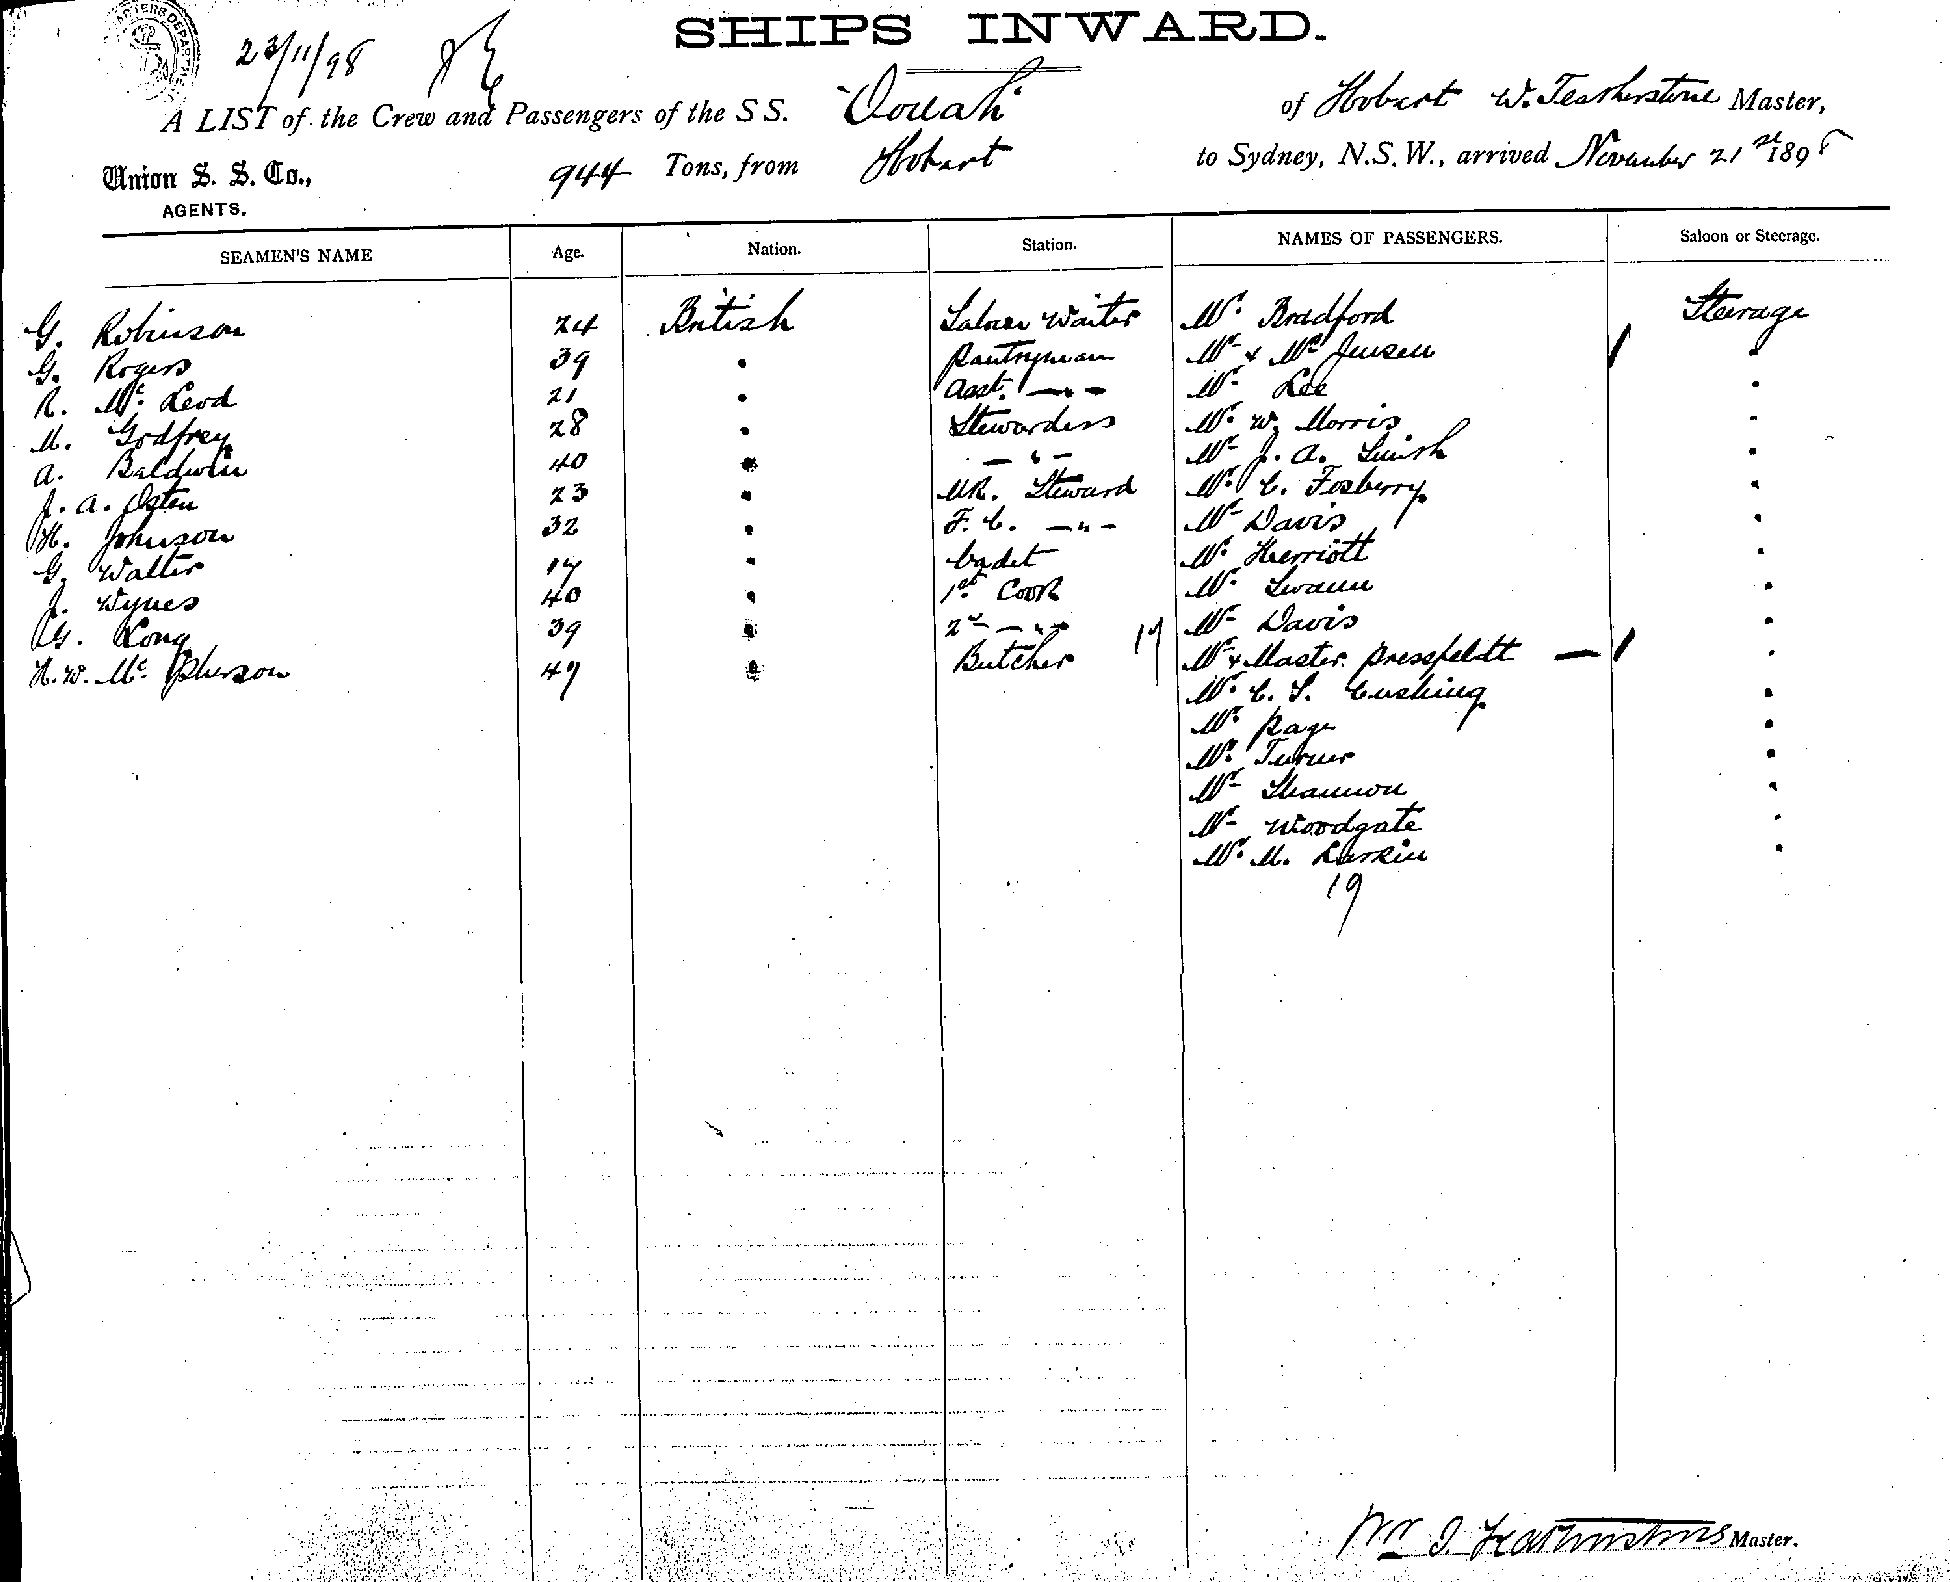 SHIPS INWARD.
23/11/98
A LIST of the Crew and Passengers of the S S. "Oonah" of Hobart W. Featherstone Master,
Union S. S. Co., 944 Tons, from Hobart to Sydney, N.S.W., arrived November 21st 1898
AGENTS.
SEAMEN'S NAME Age. Nation. Station. NAMES OF PASSENGERS. Saloon or Steerage.
G. Robinson 24 British Saloon Waiter Mr. Bradford Steerage
G. Rogers 39 " Pantryman Mr & Mrs Jensen "
R. Mc Leod 21 " Asst. —"— Mr Lee "
M. Godfrey 28 " Stewardess Mr. W. Morris "
A. Baldwin 40 " —"— Mr J. A. Smith "
J. A. Osten 23 " MR. Steward Mr. C. Fosberry "
H. Johnson 32 " F. C. —"— Mr Davis "
G. Walter 17 " Cadet Mr. Herriott "
J. Wynes 40 " 1st Cook Mr. Swann "
G. Long 39 " 2nd —"— Mr Davis "
H. W. Mc Pherson 49 " Butcher 17 Mr & Master Pressfeldt — "
Mr. C. S. Cushing "
Mr. Page "
Mr. Turner "
Mr Shannon "
Mr Woodgate "
Mr. M. Larkin "
19
Wm J. Featherstone Master.